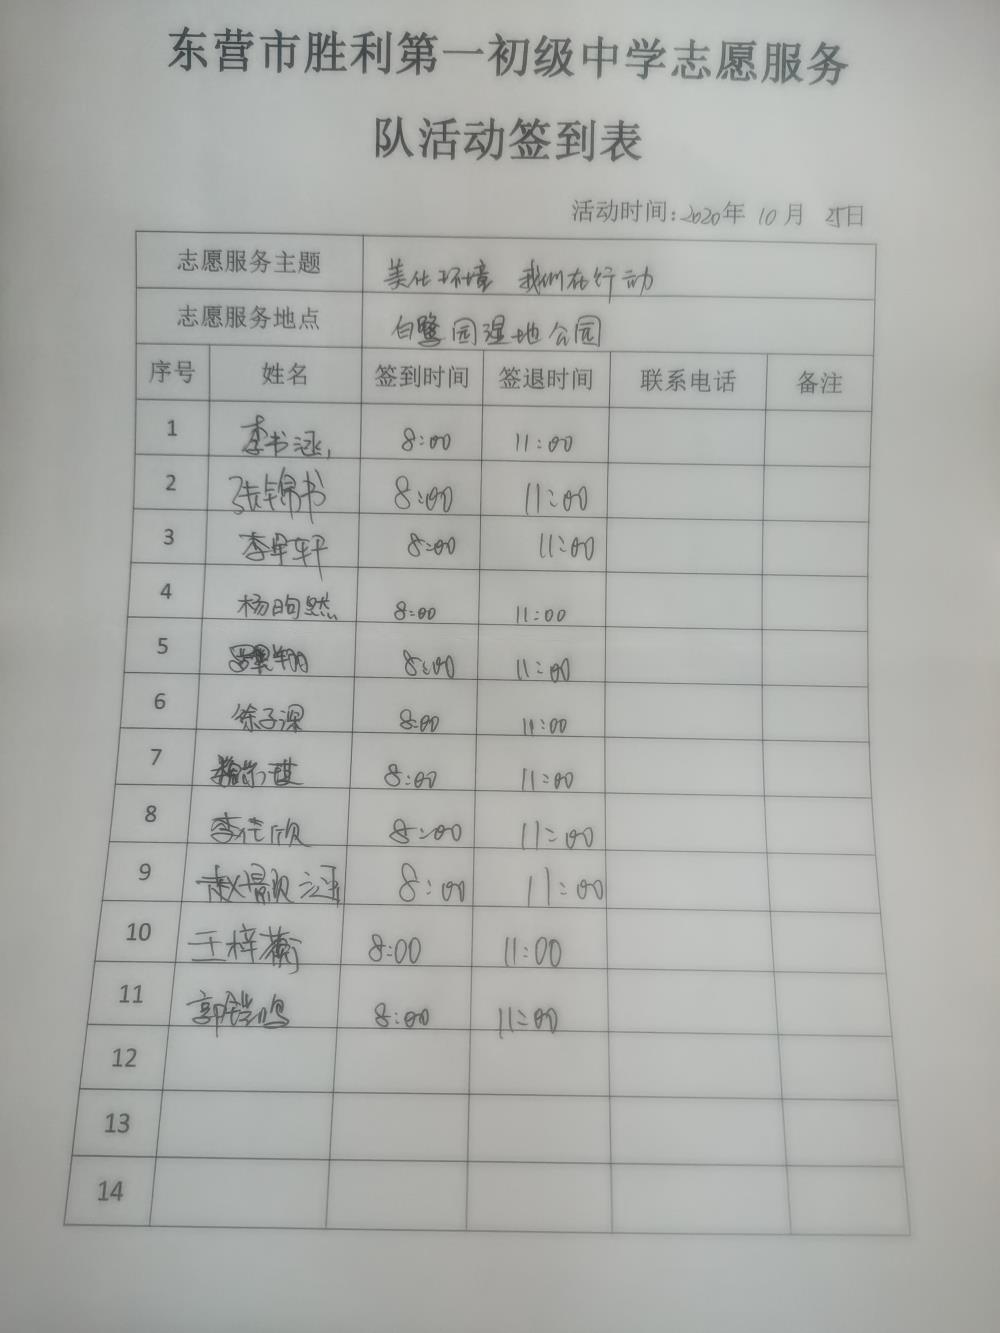 东营市胜利第一初级中学志愿服务
队活动签到表
活动时间:2020年 10月 25日
志愿服务主题 美化环境 我们在行动
志愿服务地点 白鹭园湿地公园
序号 姓名 签到时间 签退时间 联系电话 备注
1 李书涵 8:00 11:00
2 张锦书 8:00 11:00
3 李 轩 8:00 11:00
4 杨昫然 8:00 11:00
5 8:00 11:00
6 徐子 8:00 11:00
7 8:00 11:00
8 李佳欣 8:00 11:00
9 赵景 8:00 11:00
10 王梓蘅 8:00 11:00
11 郭铠鸣 8:00 11:00
12
13
14